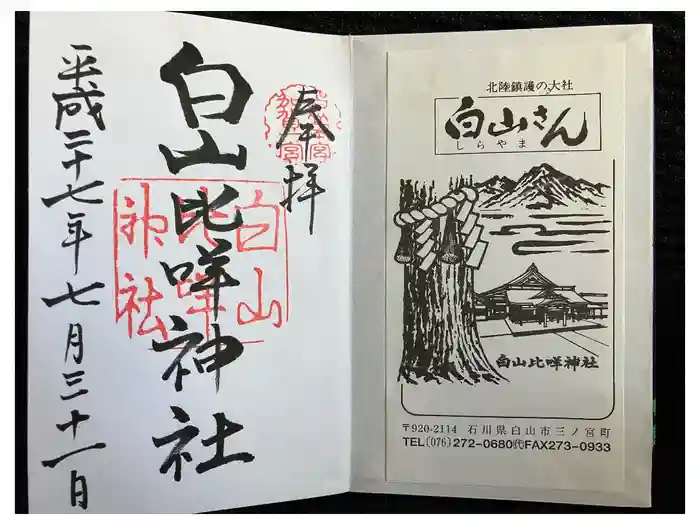 奉拝
白山比咩神社
平成二十七年七月三十一日
白山
比咩
神社
北陸鎮護の大社
白山さん
しらやま
白山比咩神社
〒920-2114 石川県白山市三ノ宮町
TEL〔076〕272-0680㈹FAX273-0933